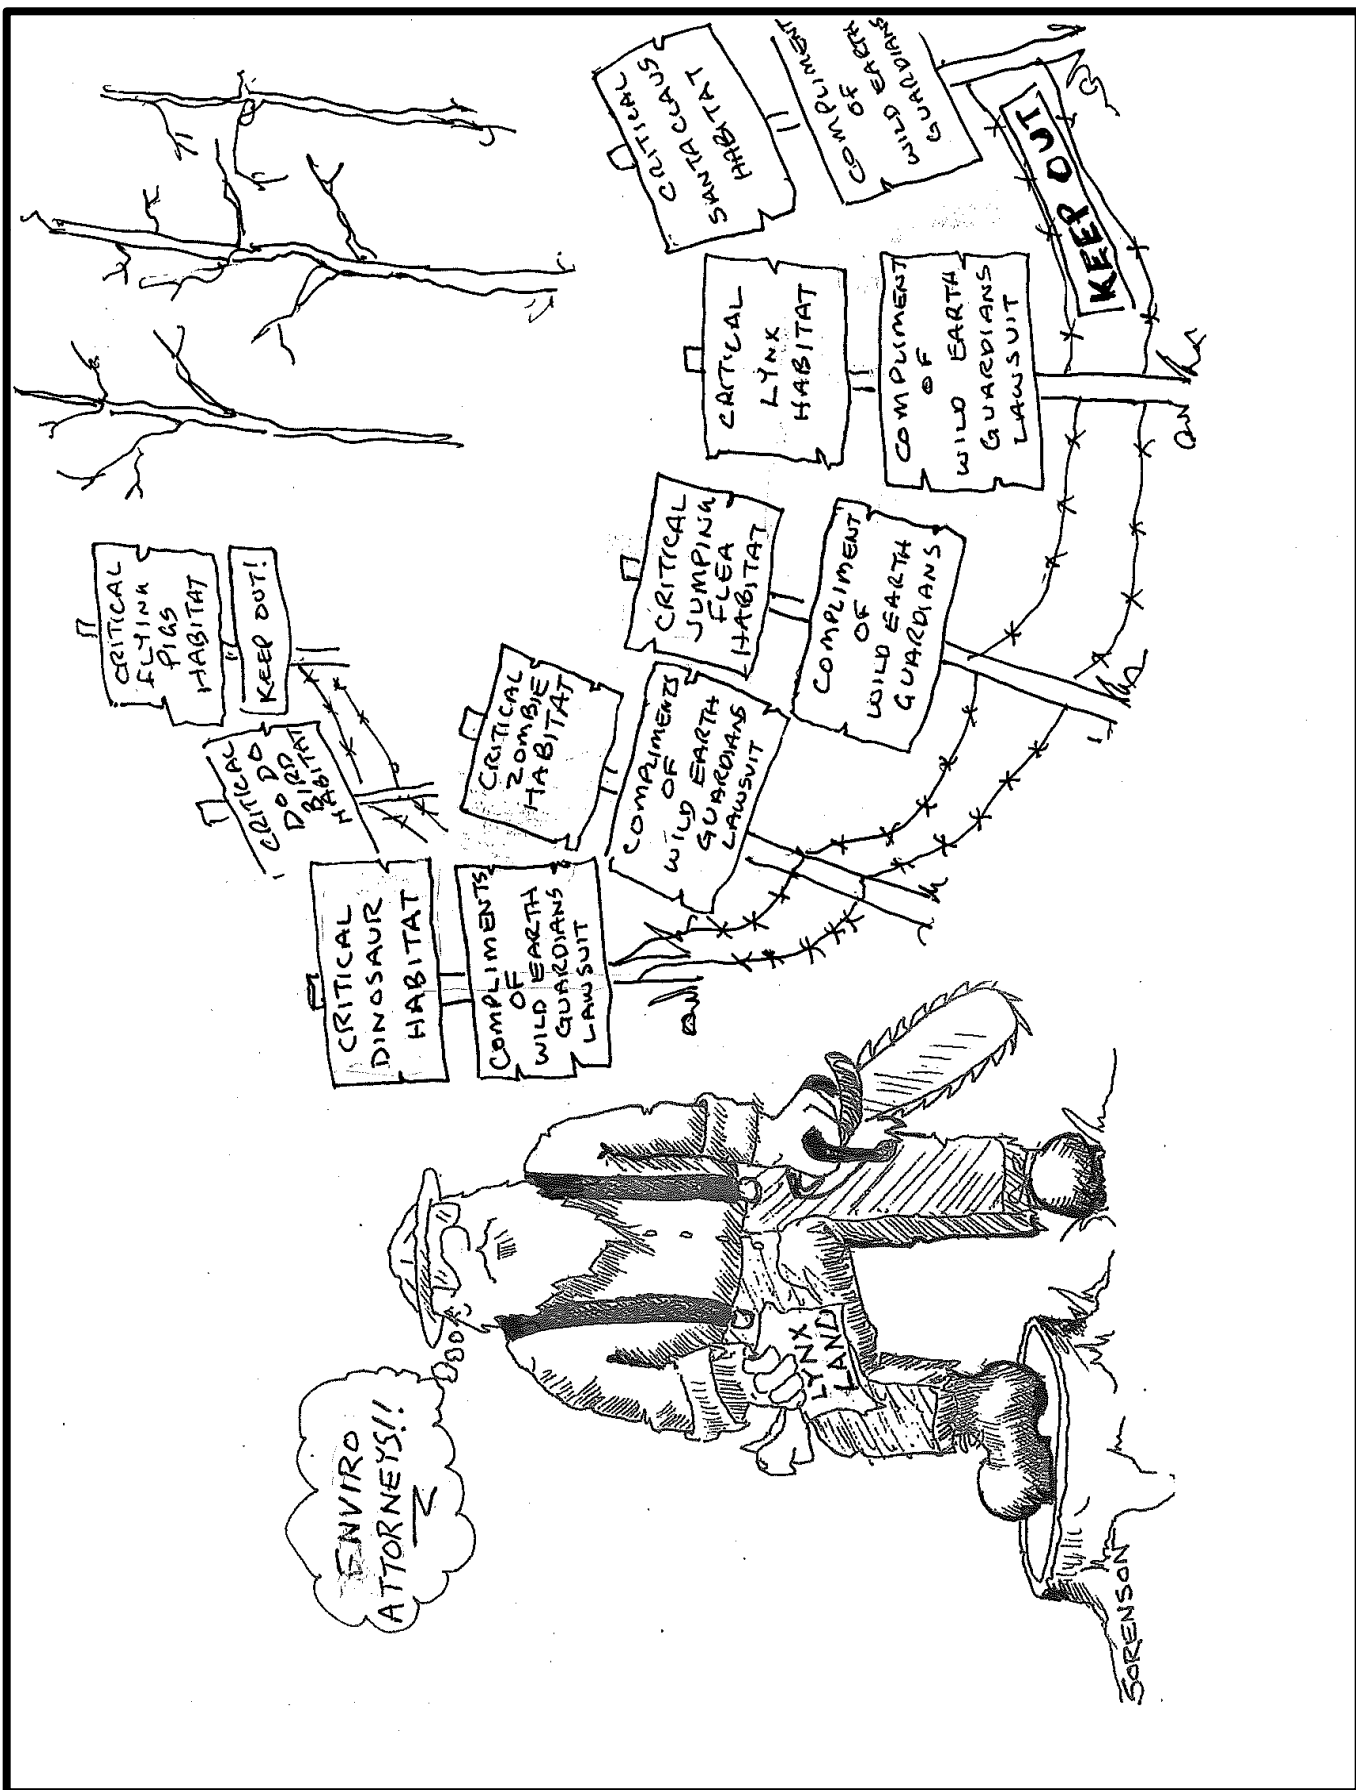 ENVIRO
ATTORNEYS!!
LYNX
LAND
SORENSON
CRITICAL
DINOSAUR
HABITAT
COMPLIMENTS
OF
WILD EARTH
GUARDIANS
LAWSUIT
CRITICAL
DO DO
BIRD
HABITAT
CRITICAL
FLYING
PIGS
HABITAT
KEEP OUT!
CRITICAL
ZOMBIE
HABITAT
COMPLIMENTS
OF
WILD EARTH
GUARDIANS
LAWSUIT
CRITICAL
JUMPING
FLEA
HABITAT
COMPLIMENT
OF
WILD EARTH
GUARDIANS
CRITICAL
LYNX
HABITAT
COMPLIMENT
OF
WILD EARTH
GUARDIANS
LAWSUIT
CRITICAL
SANTA CLAUS
HABITAT
COMPLIMENT
OF
WILD EARTH
GUARDIANS
KEEP OUT